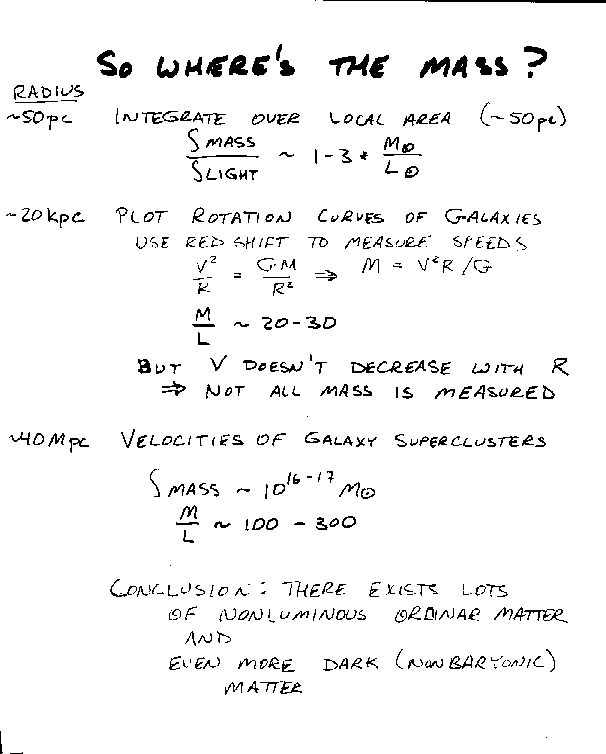 So WHERE'S THE MASS?
RADIUS
~50pc INTEGRATE OVER LOCAL AREA (~50pc)
∫MASS / ∫LIGHT ~ 1-3 * M⊙/L⊙
~20kpc PLOT ROTATION CURVES OF GALAXIES
USE RED SHIFT TO MEASURE SPEEDS
V²/R = G·M/R² ⇒ M = V²R/G
M/L ~ 20-30
BUT V DOESN'T DECREASE WITH R
⇒ NOT ALL MASS IS MEASURED
~40Mpc VELOCITIES OF GALAXY SUPERCLUSTERS
∫MASS ~ 10¹⁶⁻¹⁷ M⊙
M/L ~ 100 - 300
CONCLUSION: THERE EXISTS LOTS
OF NONLUMINOUS ORDINAR MATTER
AND
EVEN MORE DARK (NONBARYONIC)
MATTER